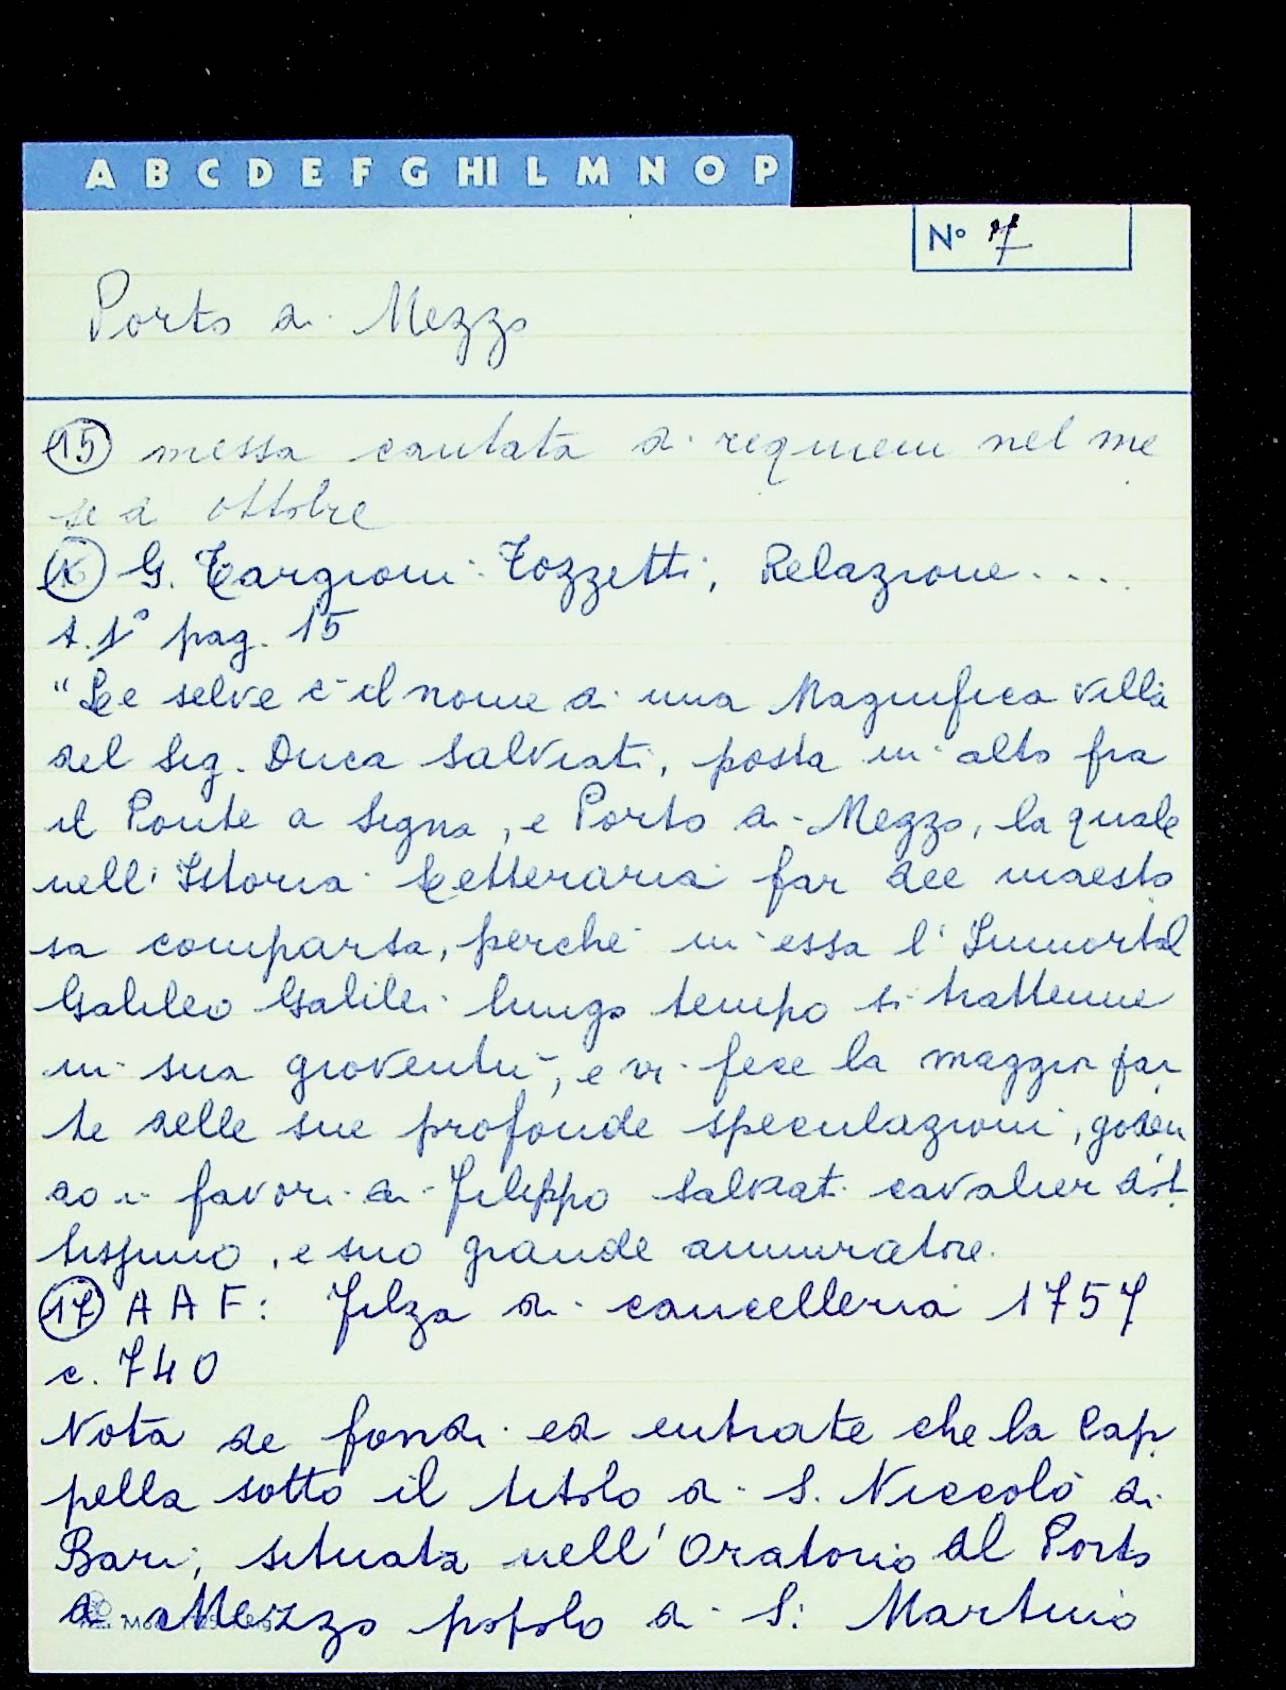 A B C D E F G HI L M N O P
N° 7
Porto di Mezzo
15 messa cantata di requiem nel me
se di ottobre
16 G. Targioni Tozzetti, Relazione....
t. 1° pag. 15
"Le selve è il nome di una Magnifica villa
del Sig. Duca Salviati, posta in alto fra
il Ponte a Signa, e Porto di Mezzo, la quale
nell'Istoria Letteraria far dee maesto
sa comparsa, perché in essa l'Immortal
Galileo Galilei lungo tempo si trattenne
in sua gioventù, e vi fece la maggior par
te delle sue profonde speculazioni, goden
do i favori di Filippo Salviati cavalier dot
tissimo, e suo grande ammiratore.
17 A A F: Filza di cancelleria 1757
c. 740
Nota de fondi ed entrate che la Cap
pella sotto il titolo di S. Niccolò di
Bari, situata nell'Oratorio al Porto
di Mezzo popolo di S. Martino